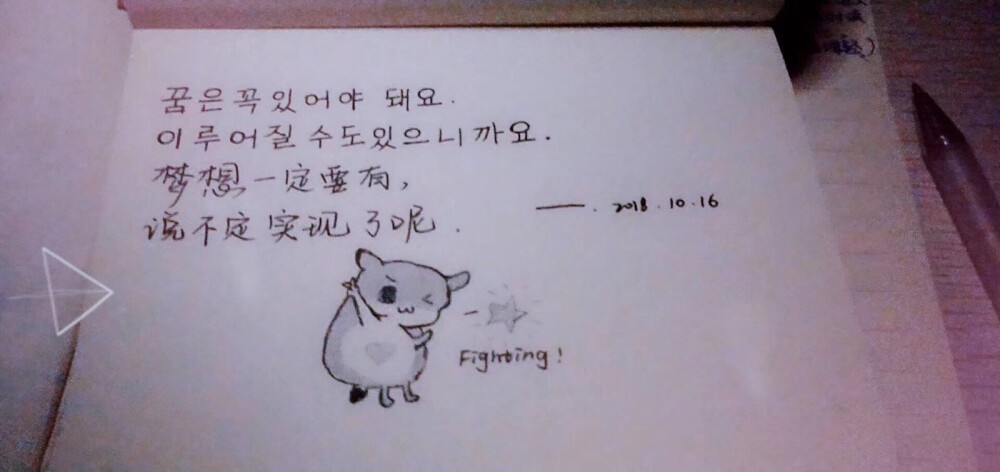 꿈은꼭있어야 돼요.
이루어질 수도있으니까요.
梦想一定要有,
说不定实现了呢.
—— . 2018.10.16
Fighting!